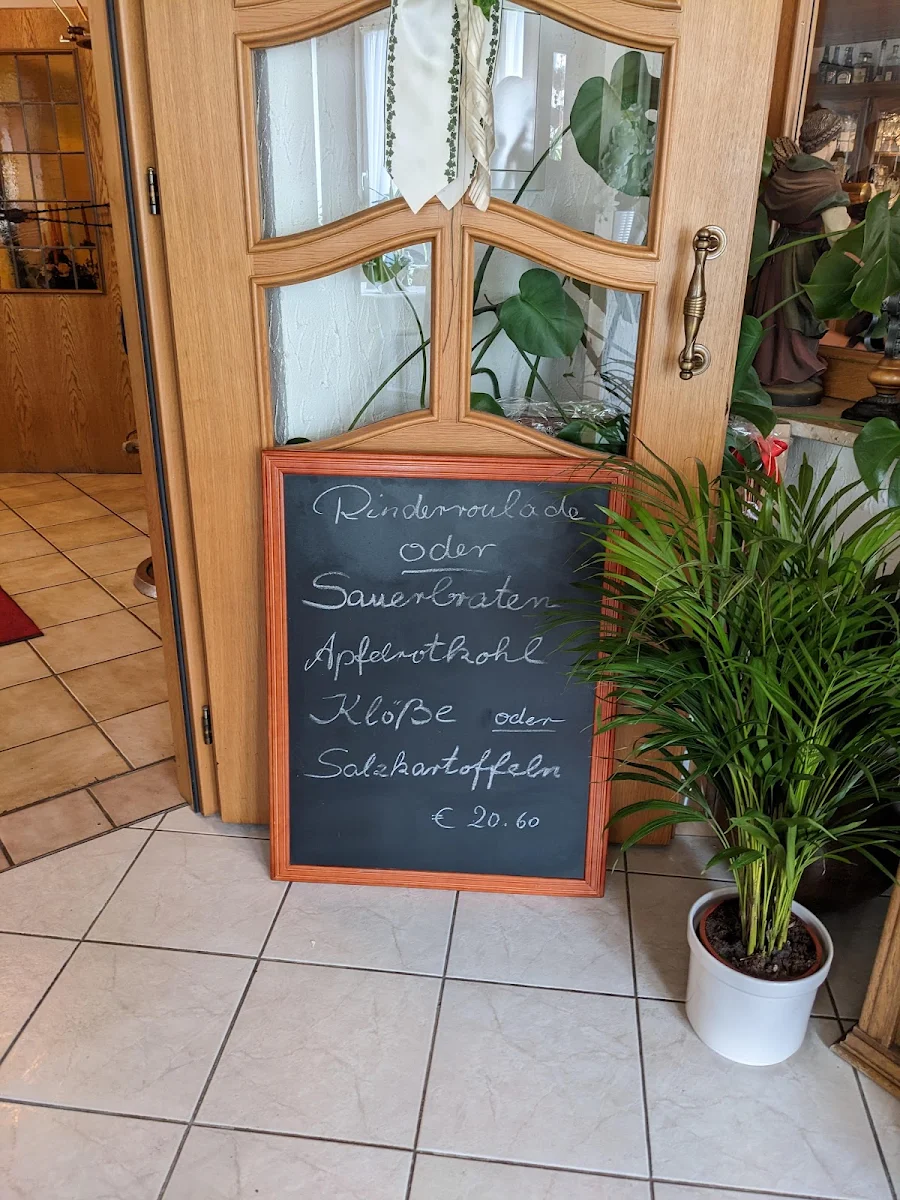 Rinderroulade
oder
Sauerbraten
Apfelrotkohl
Klöße oder
Salzkartoffeln
€ 20.60